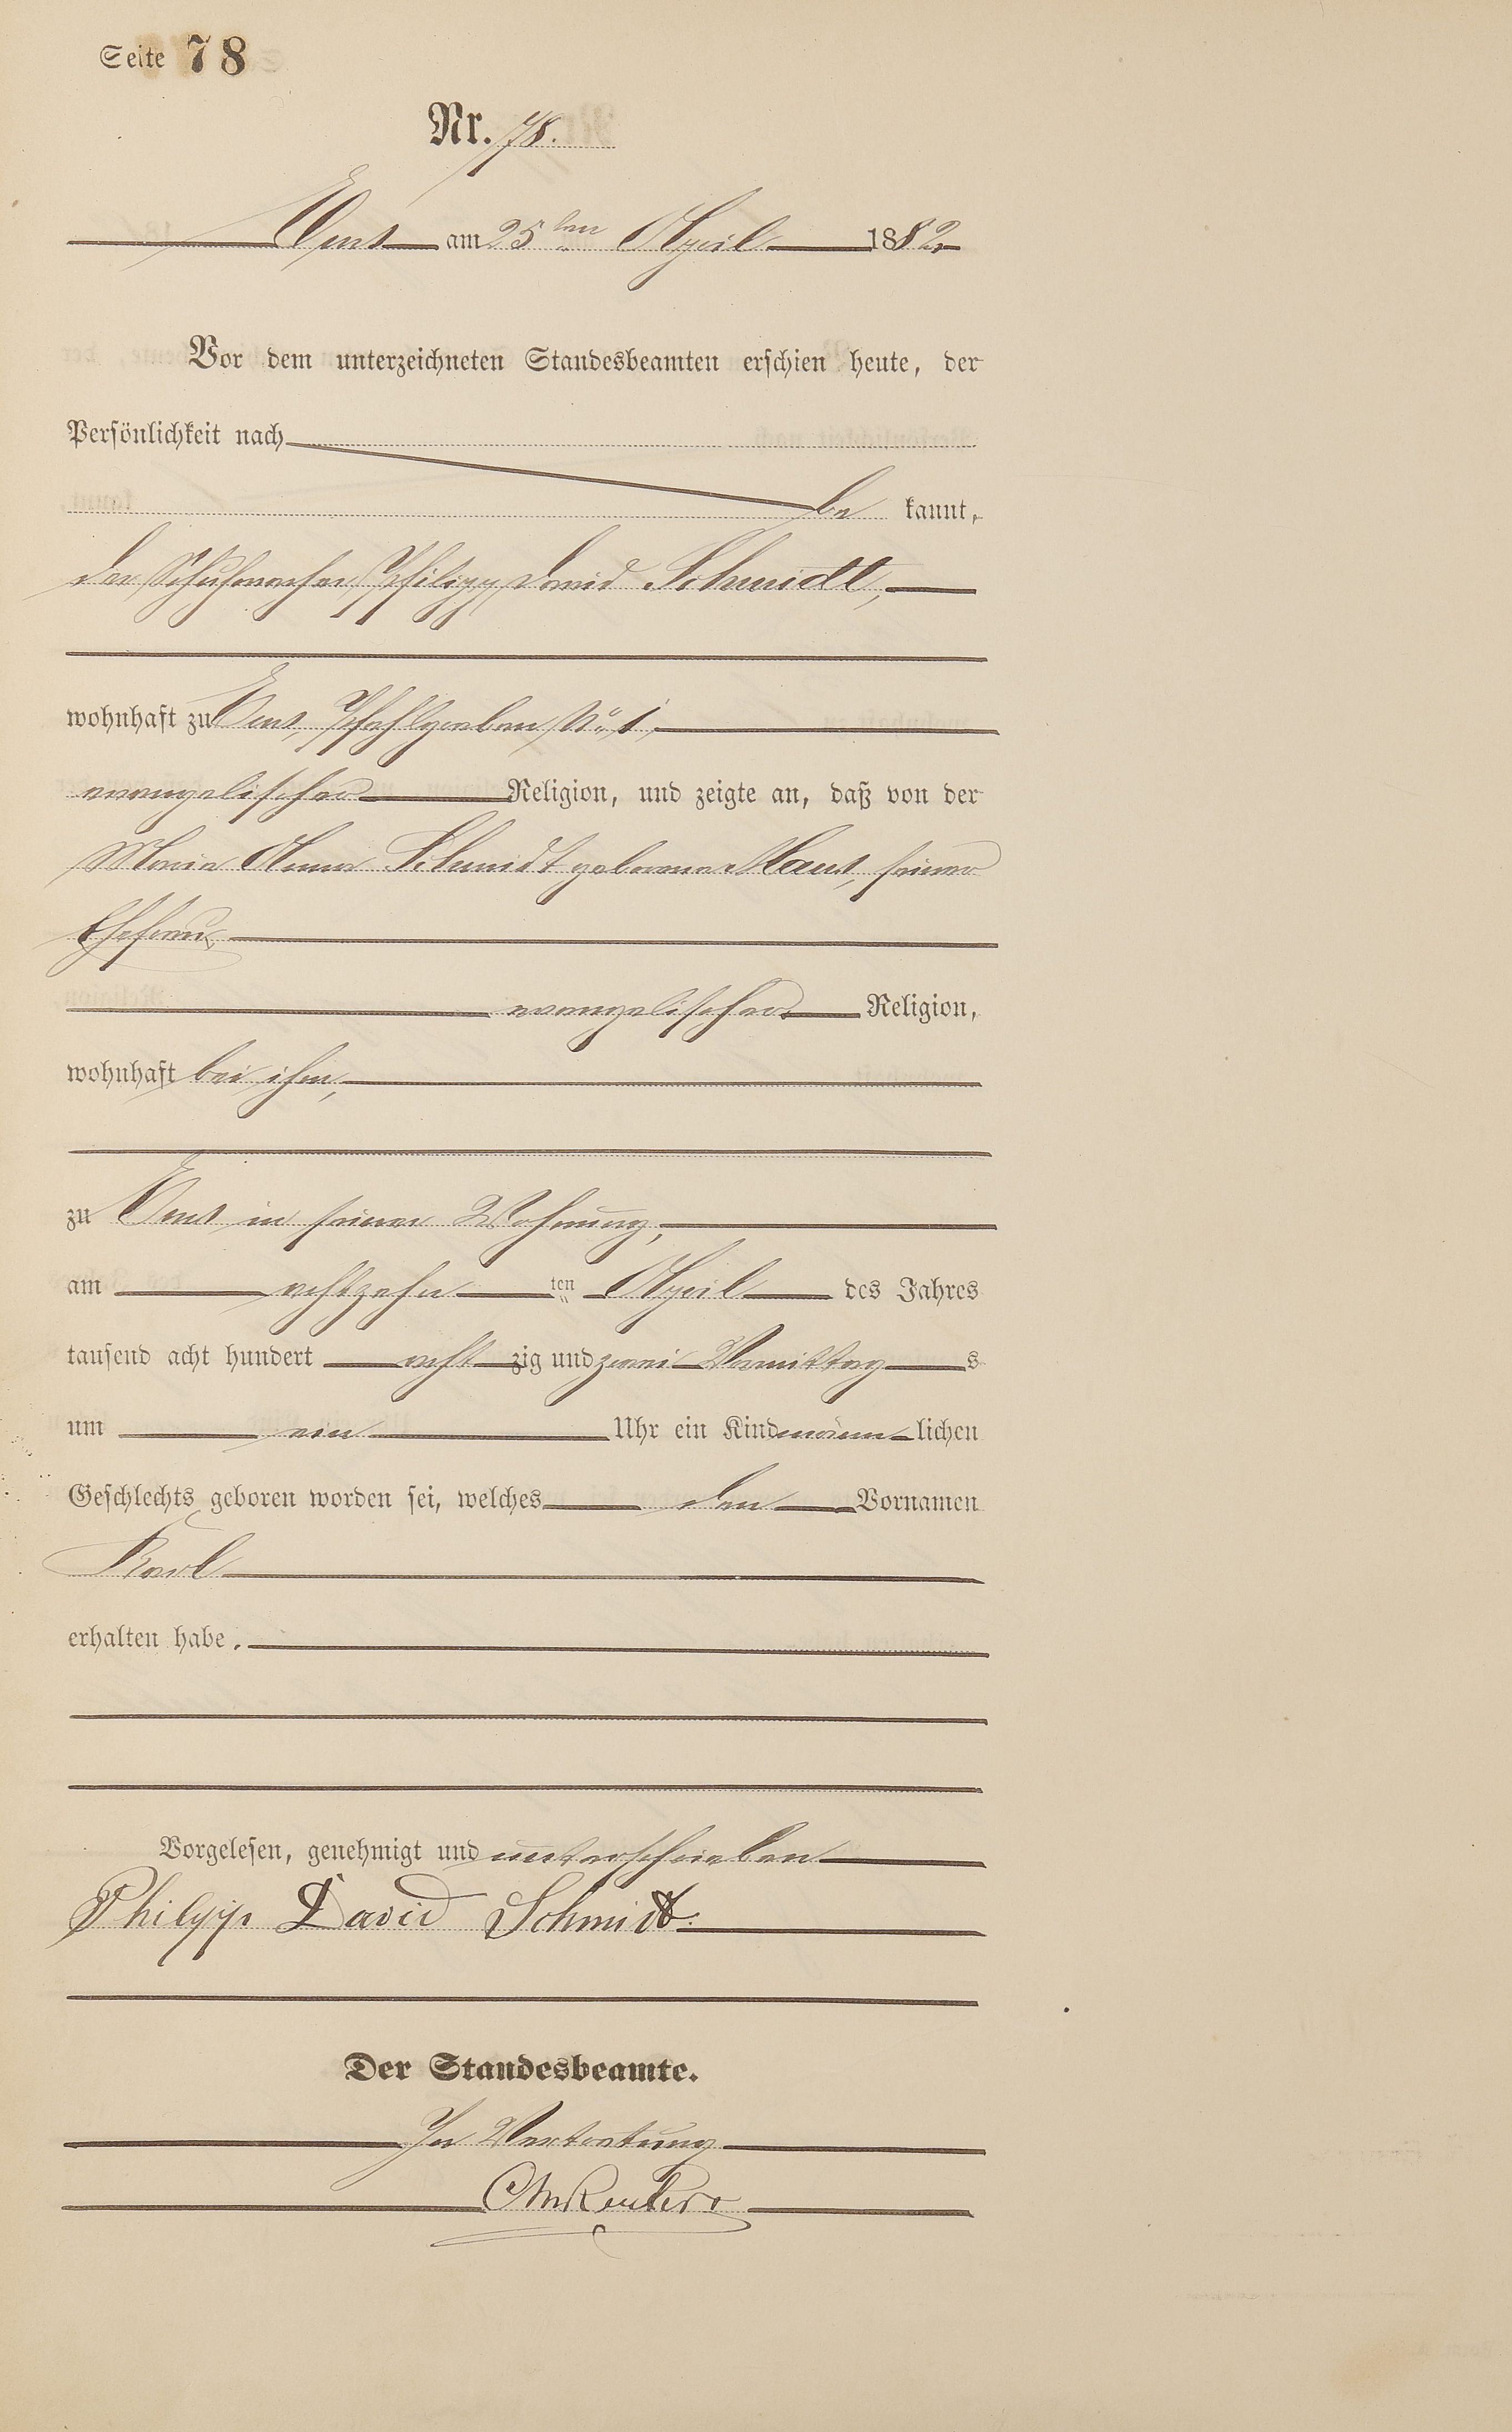 Seite 78
Nr. 78.
Ems am 25ten April 1882
Vor dem unterzeichneten Standesbeamten erschien heute, der
Persönlichkeit nach
be kannt,
der Schuhmacher Philipp David Schmidt,
wohnhaft zu Ems, Pfahlgraben No 1,
evangelischer Religion, und zeigte an, daß von der
Maria Anna Schmidt geborene Maus, seiner
Ehefrau,
evangelischer Religion,
wohnhaft bei ihm,
zu Ems in seiner Wohnung,
am achtzehn ten April des Jahres
tausend acht hundert acht zig und zwei Vormittag s
um ein Uhr ein Kind männ lichen
Geschlechts geboren worden sei, welches den Vornamen
Karl
erhalten habe.
Vorgelesen, genehmigt und unterschrieben
Philipp David Schmidt.
Der Standesbeamte.
In Vertretung